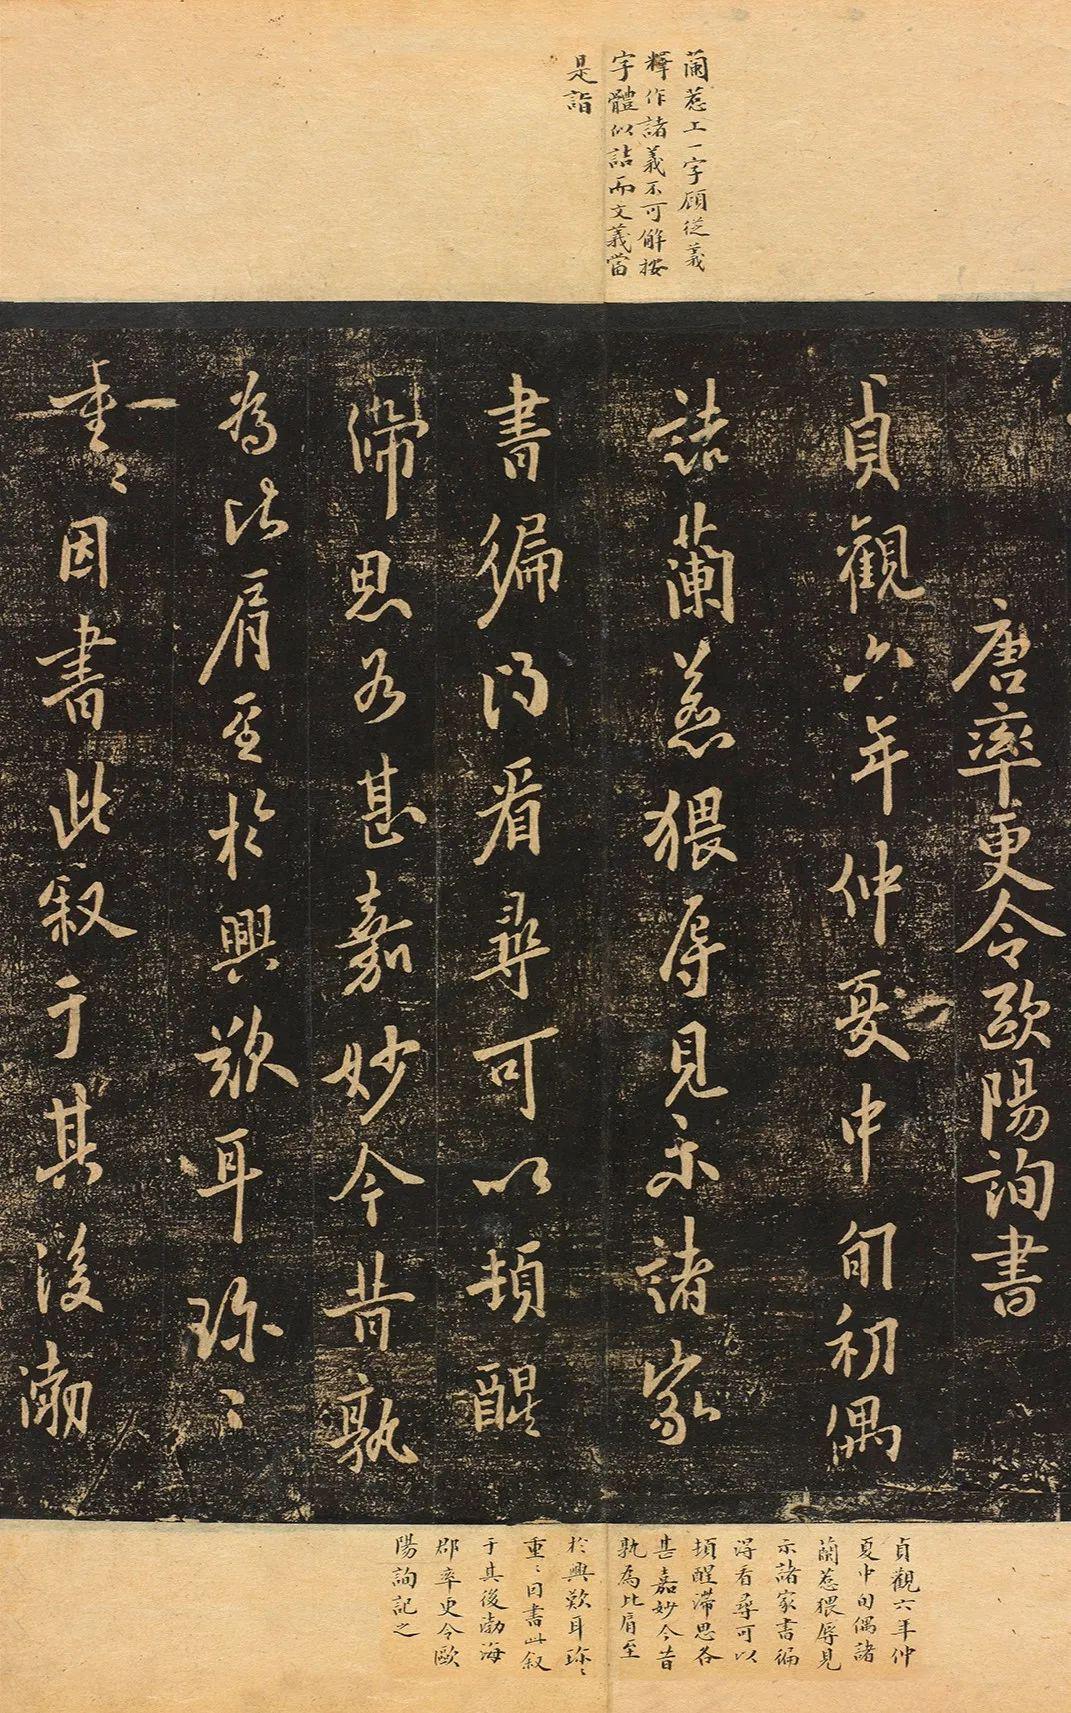 蘭惹上一字顧從義
釋作諸義不可解按
字體似詰而文義當
是詣
唐率更令歐陽詢書
貞觀六年仲夏中旬初偶
詰蘭惹猥辱見示諸家
書徧得看尋可以頓醒
滯思各甚嘉妙今昔孰
為比肩至於興歎耳珎〻
重〻因書此叙于其後渤
貞觀六年仲
夏中旬偶諸
蘭惹猥辱見
示諸家書徧
得看尋可以
頓醒滯思各
甚嘉妙今昔
孰為比肩至
於興歎耳珎〻
重〻因書此叙
于其後渤海
郡率更令歐
陽詢記之